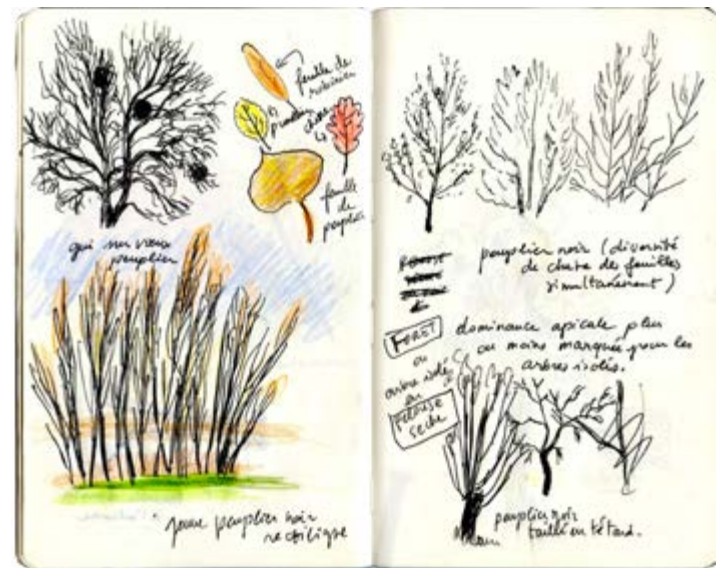 feuille de
robinier
prunelier
chêne
feuille
de
peuplier
gui sur vieux
peuplier
jeune peuplier noir
rectiligne
peuplier noir (diversité
de chute des feuilles
simultanément)
FORÊT
ou
arbre isolé
en
PELOUSE
SÈCHE
dominance apicale plus
ou moins marquée pour les
arbres isolés.
peuplier noir
taillé en têtard.